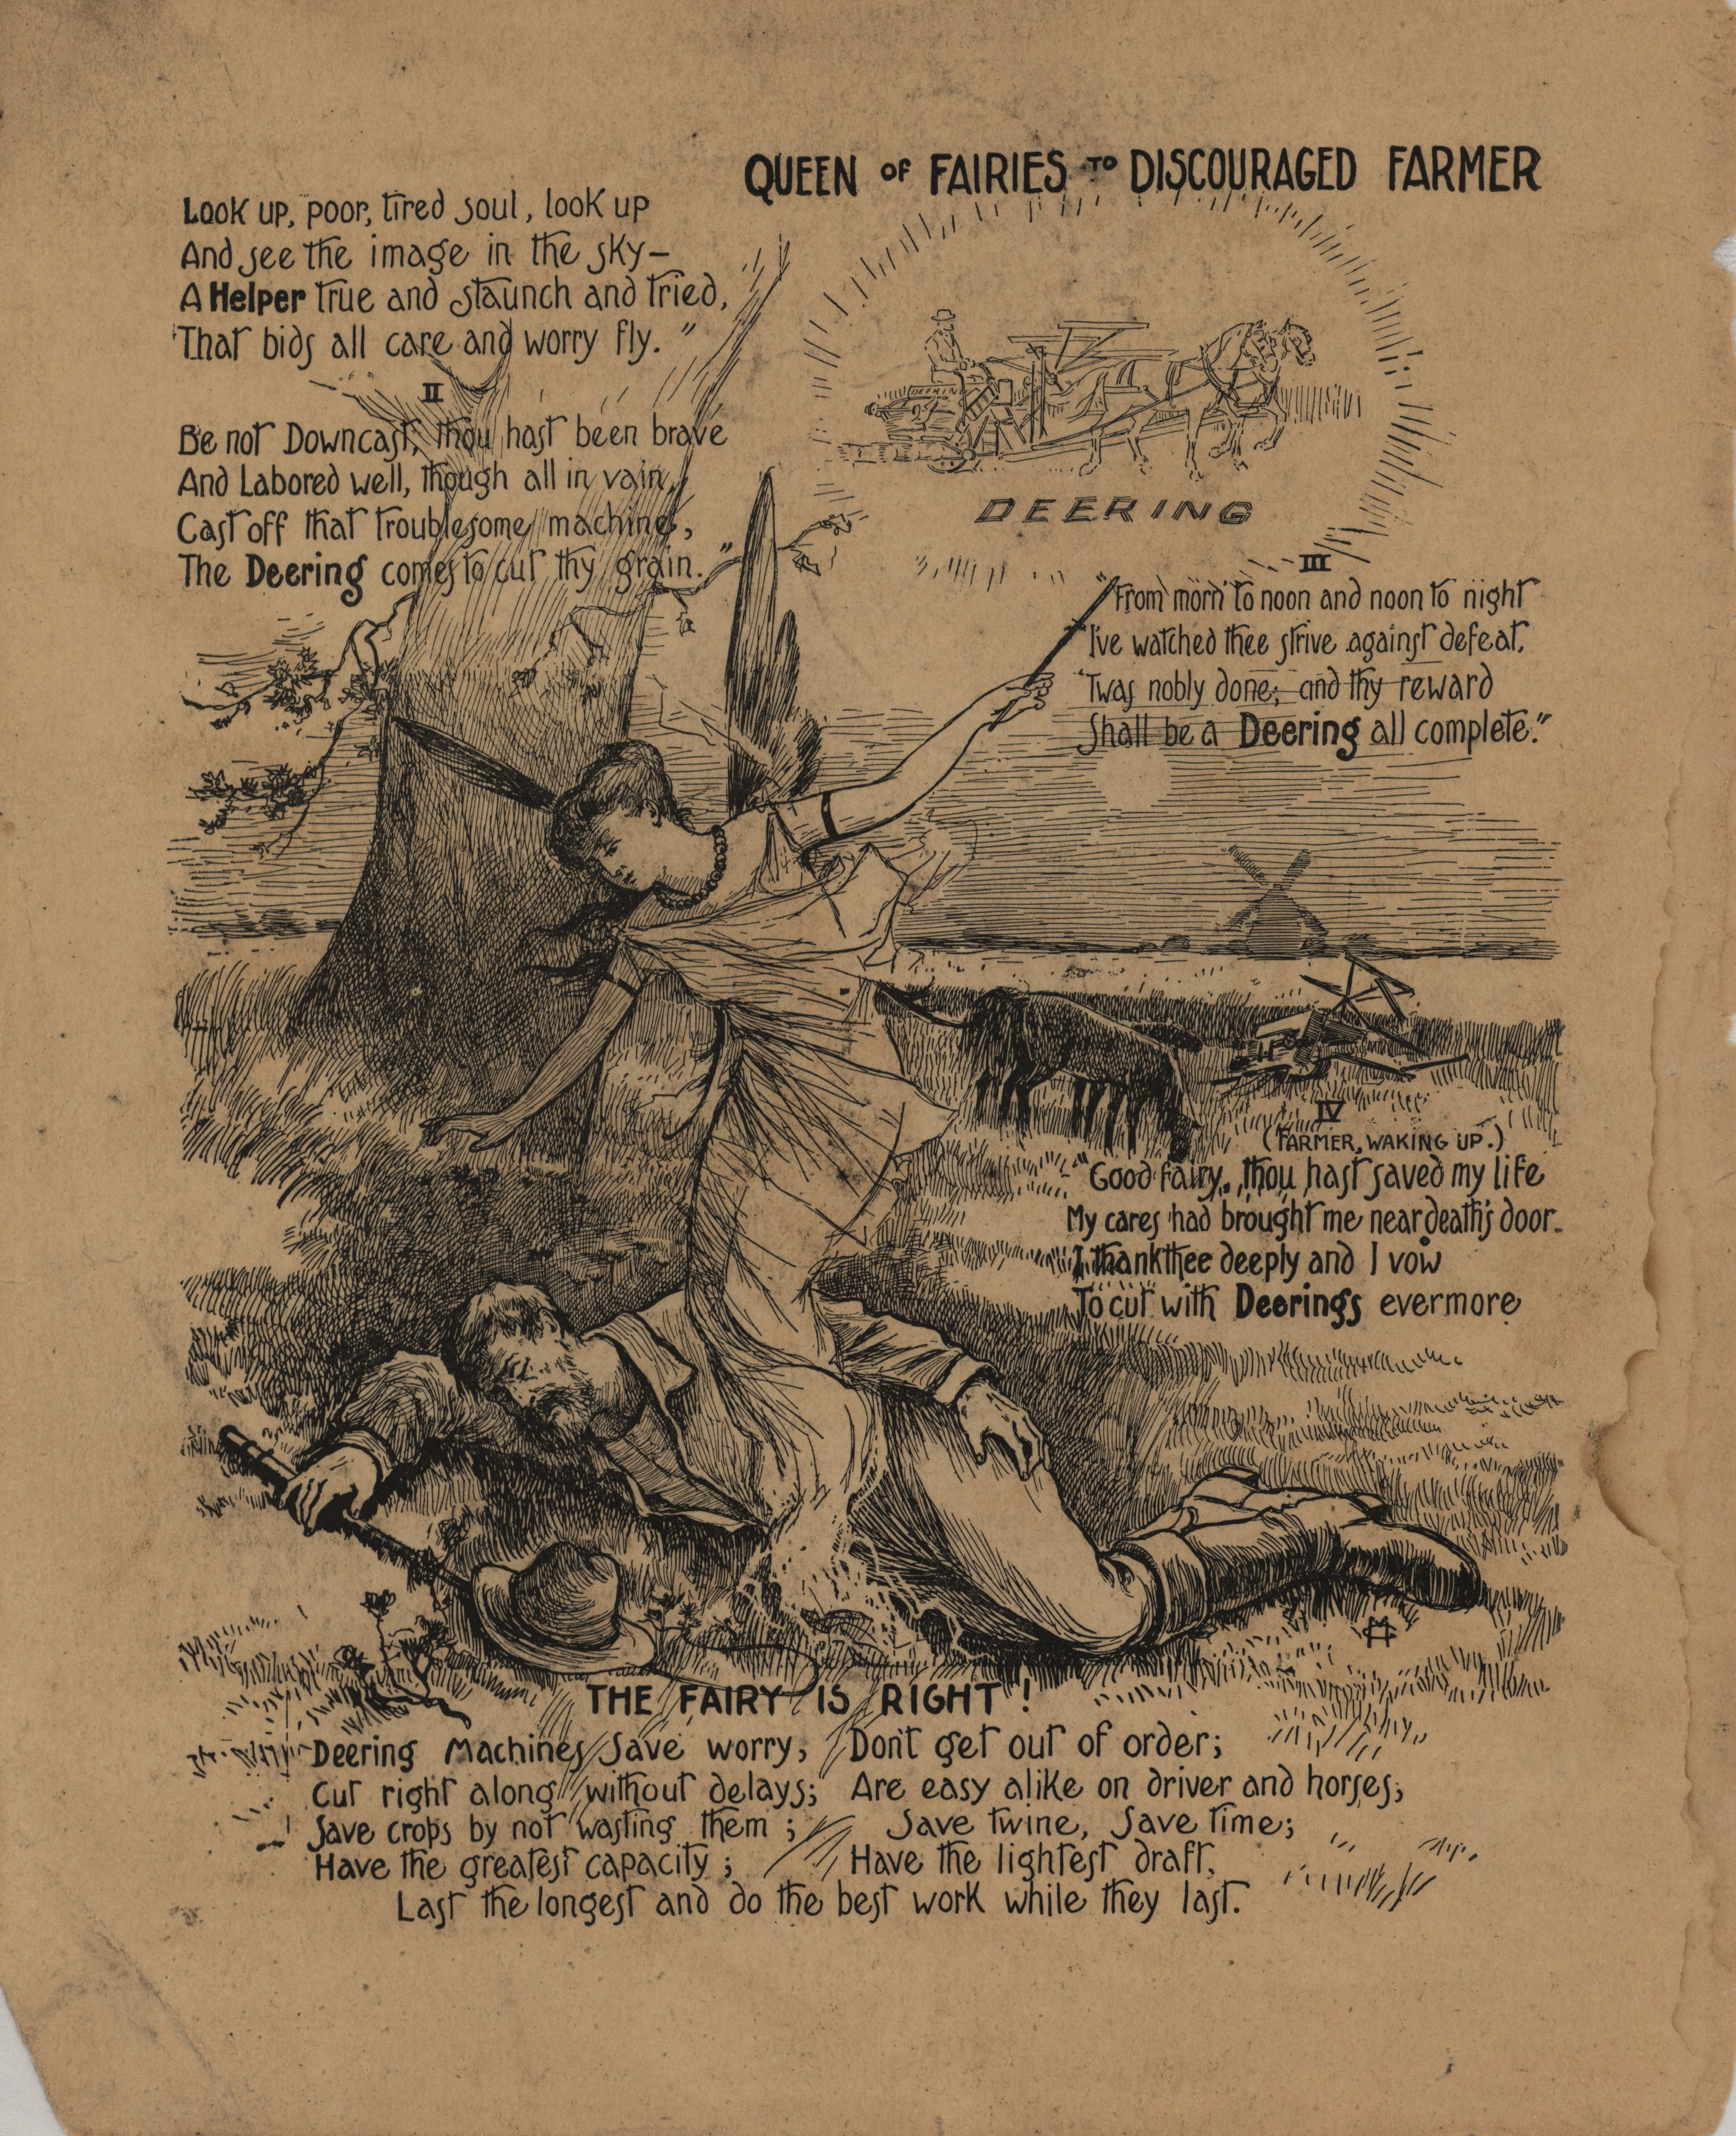 QUEEN OF FAIRIES TO DISCOURAGED FARMER
Look up, poor, tired soul, look up
And see the image in the sky—
A Helper true and staunch and tried,
That bids all care and worry fly."
II
Be not Downcast, thou hast been brave
And Labored well, though all in vain,
Cast off that troublesome machine,
The Deering comes to cut thy grain."
DEERING
DEERING
III
"From morn to noon and noon to night
I've watched thee strive against defeat,
'Twas nobly done; and thy reward
Shall be a Deering all complete."
IV
(FARMER, WAKING UP.)
"Good fairy, thou hast saved my life
My cares had brought me near death's door.
I thank thee deeply and I vow
To cut with Deerings evermore
THE FAIRY IS RIGHT!
Deering Machines Save worry; Don't get out of order;
Cut right along without delays; Are easy alike on driver and horses;
Save crops by not wasting them; Save twine, Save time;
Have the greatest capacity; Have the lightest draft,
Last the longest and do the best work while they last.